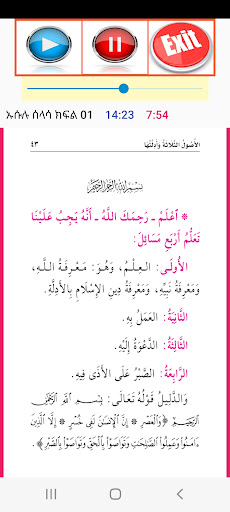 Exit
ኡሱሉ ሰላሳ ክፍል 01 14:23 7:54
الأُصُولُ الثَّلَاثَةُ وَأَدِلَّتُهَا ٤٣
بِسْمِ اللَّهِ الرَّحْمَنِ الرَّحِيمِ
* ٱعْلَمْ ـ رَحِمَكَ اللَّهُ ـ أَنَّهُ يَجِبُ عَلَيْنَا
تَعَلُّمُ أَرْبَعِ مَسَائِلَ:
الأُولَى: العِلْمُ، وَهُوَ: مَعْرِفَةُ اللَّهِ،
وَمَعْرِفَةُ نَبِيِّهِ، وَمَعْرِفَةُ دِينِ الإِسْلَامِ بِالأَدِلَّةِ.
الثَّانِيَةُ: العَمَلُ بِهِ.
الثَّالِثَةُ: الدَّعْوَةُ إِلَيْهِ.
الرَّابِعَةُ: الصَّبْرُ عَلَى الأَذَى فِيهِ.
وَالدَّلِيلُ قَوْلُهُ تَعَالَى: بِسْمِ اللَّهِ الرَّحْمَنِ
الرَّحِيمِ ﴿وَالْعَصْرِ * إِنَّ الْإِنسَانَ لَفِي خُسْرٍ * إِلَّا الَّذِينَ
ءَامَنُوا وَعَمِلُوا الصَّالِحَاتِ وَتَوَاصَوْا بِالْحَقِّ وَتَوَاصَوْا بِالصَّبْرِ﴾.